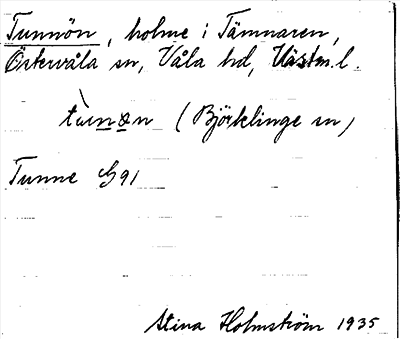 Tunnön, holme i Tämnaren,
Östervåla sn, Våla hd, Västm.l.
tùnön (Björklinge sn)
Tunne G91
Stina Holmström 1935